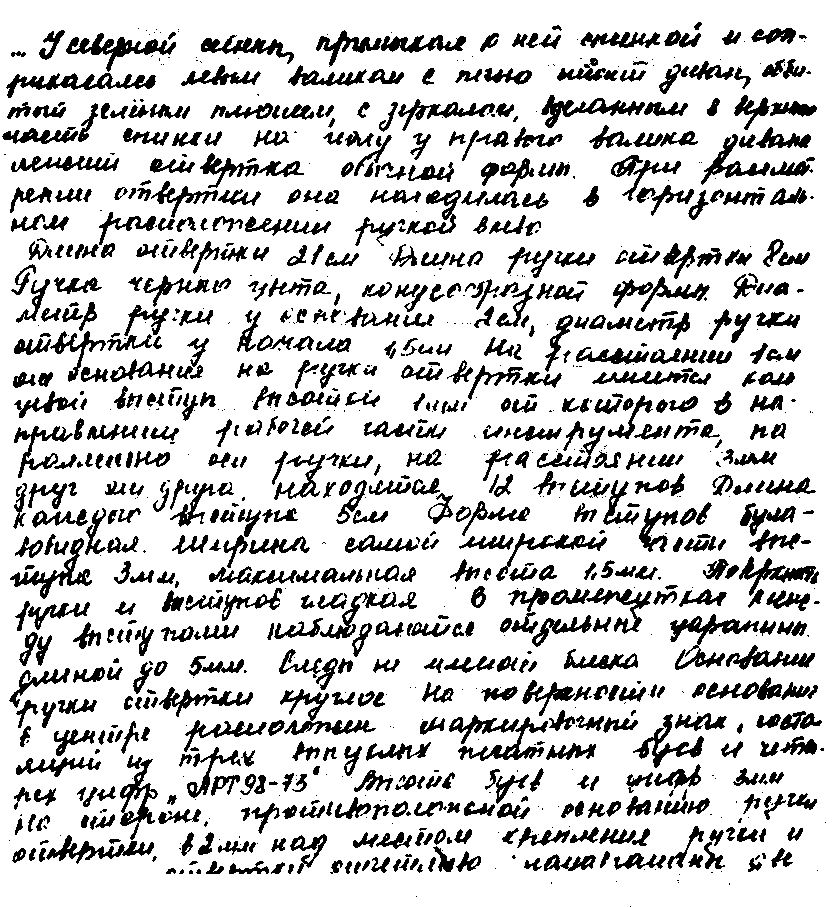 ... У северной стены, примыкая к ней спинкой и соп-
рикасаясь левым валиком с печью стоит диван, оби-
тый зелёным плюшем, с зеркалом, вделанным в верхнюю
часть спинки на полу у правого валика дивана
лежит отвертка обычной формы. При рассмот-
рении отвертки она находилась в горизонталь-
ном расположении ручкой влево
Длина отвертки 21см Длина ручки отвертки 8см
Ручка черного цвета, конусообразной формы. Диа-
метр ручки у основания 2см, диаметр ручки
отвертки у начала 1,5см На расстоянии 1см
от основания на ручки отвертки имеется коль
цевой выступ высотой 1мм от которого в на-
правлении рабочей части инструмента, па
раллельно оси ручки, на расстоянии 3мм
друг от друга находятся 12 выступов Длина
каждого выступа 5см Форма выступов була-
вовидная. Ширина самой широкой части выс-
тупа 3мм, максимальная высота 1,5мм. Поверхность
ручки и выступов гладкая В промежутках меж-
ду выступами наблюдаются отдельные царапины
длиной до 5мм. Следы не имеют блеска Основание
ручки отвертки круглое На поверхности основания
в центре расположен маркировочный знак, состо
ящий из трех выпуклых печатных букв и четы
рех цифр „АРТ98-73" Высота букв и цифр 3мм
На стороне, противоположной основанию ручки
отвертки, в 2мм над местом крепления ручки и